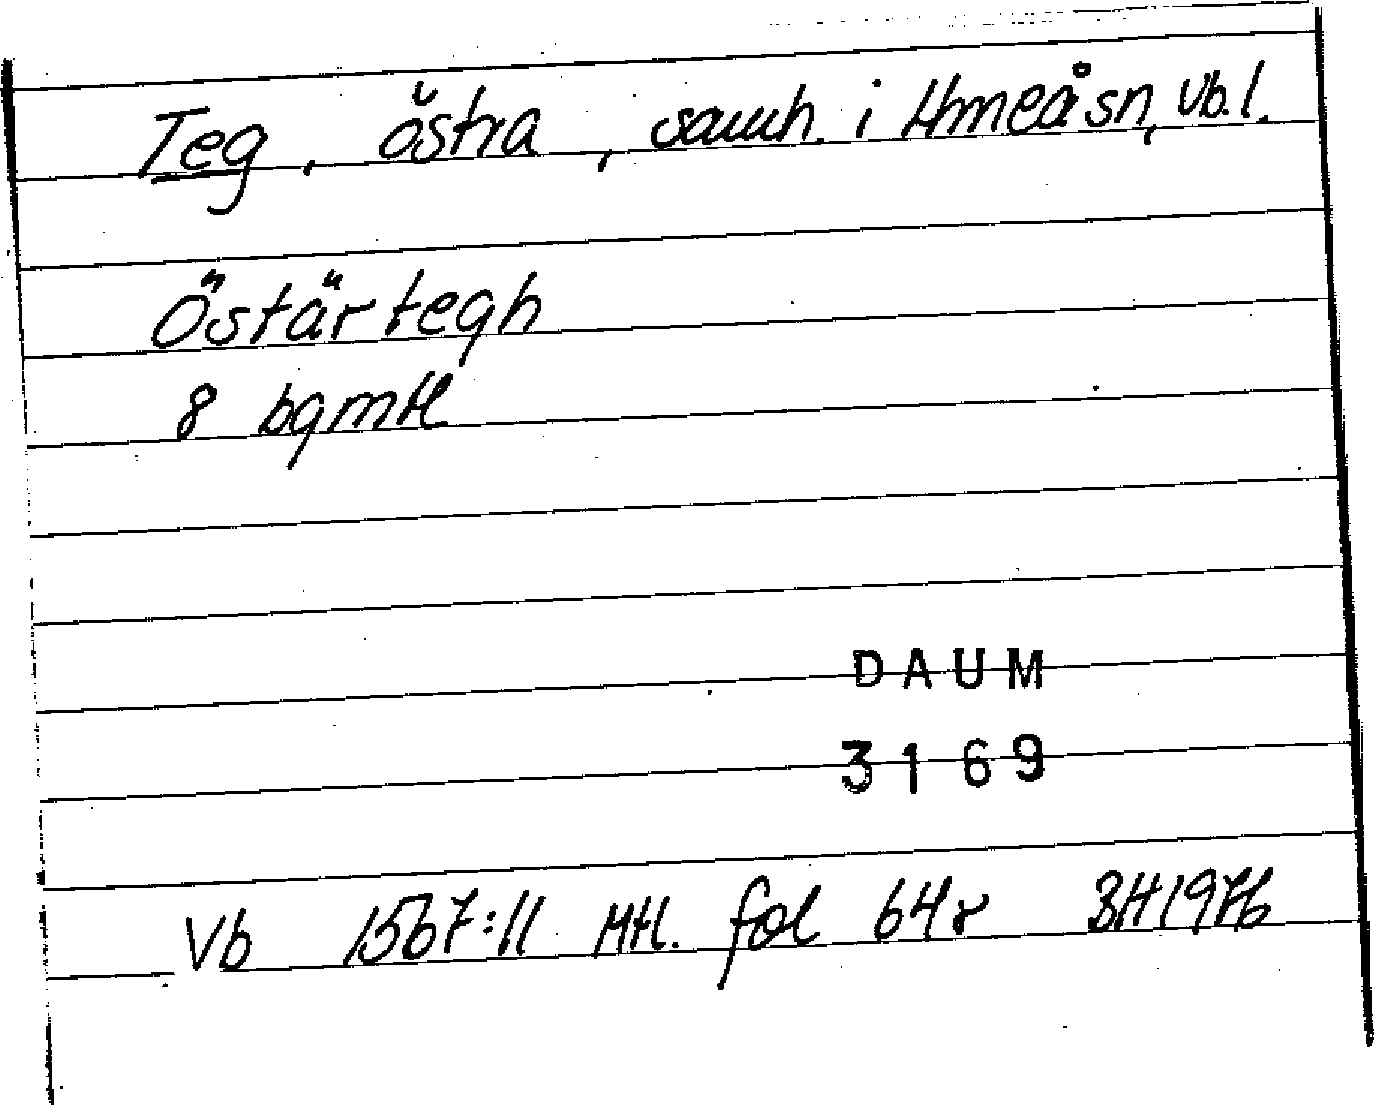 Teg, östra, samh. i Umeå sn, Vb.l.
Östärtegh
8 bgmtl
DAUM
3169
Vb 1567:11 Mtl. fol 64r BH1976